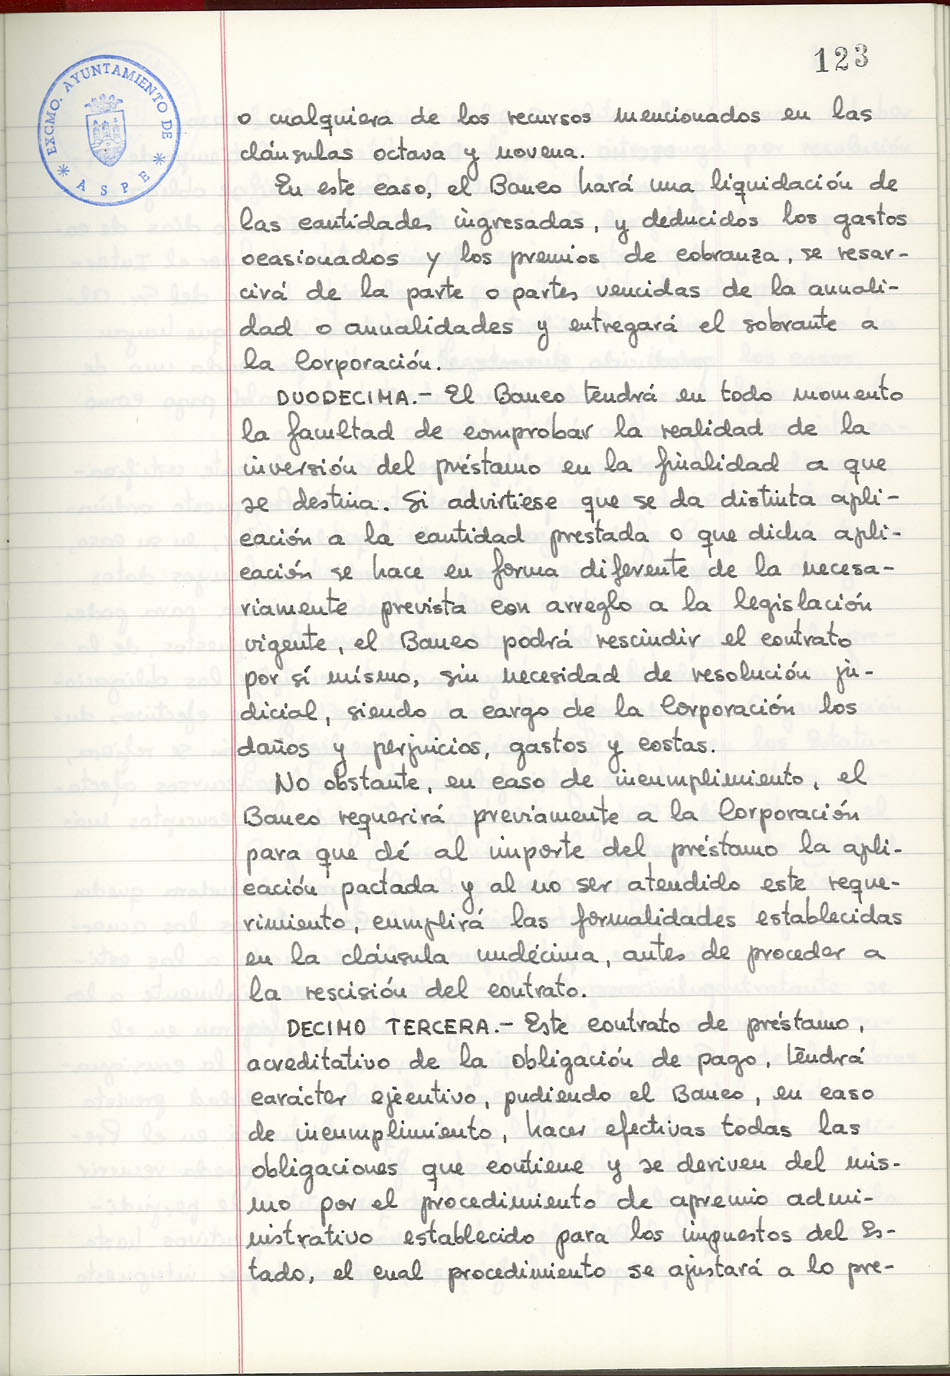 123
EXCMO. AYUNTAMIENTO DE
* ASPE *
o cualquiera de los recursos mencionados en las
cláusulas octava y novena.
En este caso, el Banco hará una liquidación de
las cantidades ingresadas, y deducidos los gastos
ocasionados y los premios de cobranza, se resar-
cirá de la parte o partes vencidas de la anuali-
dad o anualidades y entregará el sobrante a
la Corporación.
DUODECIMA.- El Banco tendrá en todo momento
la facultad de comprobar la realidad de la
inversión del préstamo en la finalidad a que
se destina. Si advirtiese que se da distinta apli-
cación a la cantidad prestada o que dicha apli-
cación se hace en forma diferente de la necesa-
riamente prevista con arreglo a la legislación
vigente, el Banco podrá rescindir el contrato
por sí mismo, sin necesidad de resolución ju-
dicial, siendo a cargo de la Corporación los
daños y perjuicios, gastos y costas.
No obstante, en caso de incumplimiento, el
Banco requerirá previamente a la Corporación
para que dé al importe del préstamo la apli-
cación pactada y al no ser atendido este reque-
rimiento, cumplirá las formalidades establecidas
en la cláusula undécima, antes de proceder a
la rescisión del contrato.
DECIMO TERCERA.- Este contrato de préstamo,
acreditativo de la obligación de pago, tendrá
carácter ejecutivo, pudiendo el Banco, en caso
de incumplimiento, hacer efectivas todas las
obligaciones que contiene y se deriven del mis-
mo por el procedimiento de apremio admi-
nistrativo establecido para los impuestos del Es-
tado, el cual procedimiento se ajustará a lo pre-